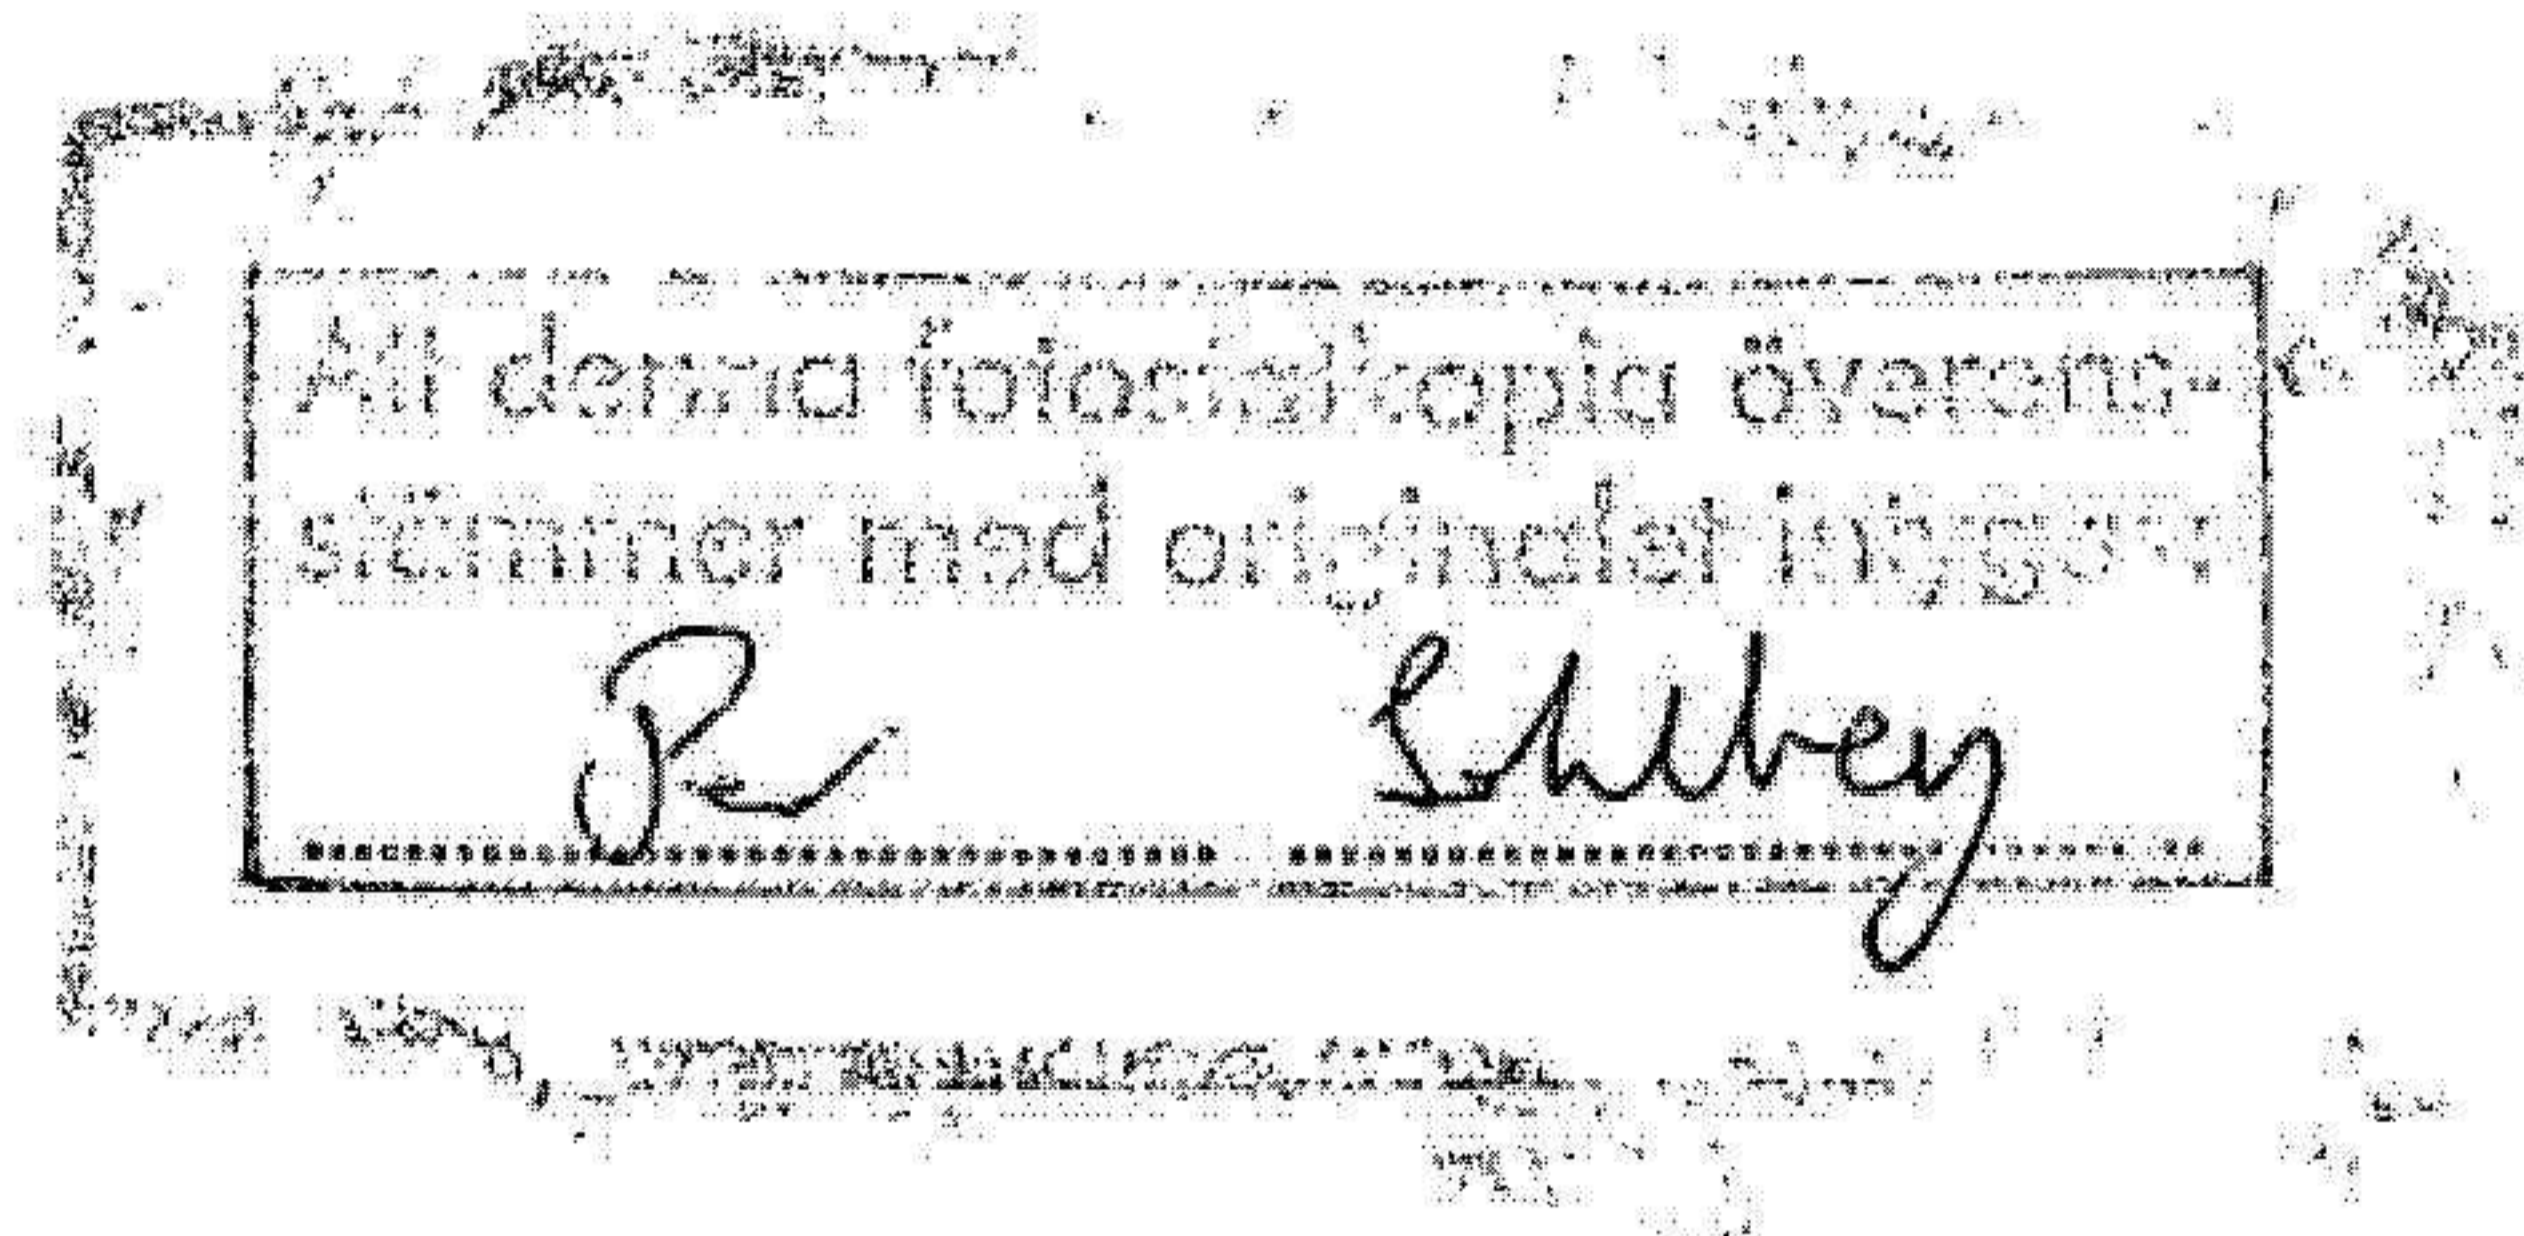 Att denna fotostatkopia överens-
stämmer med originalet intygar